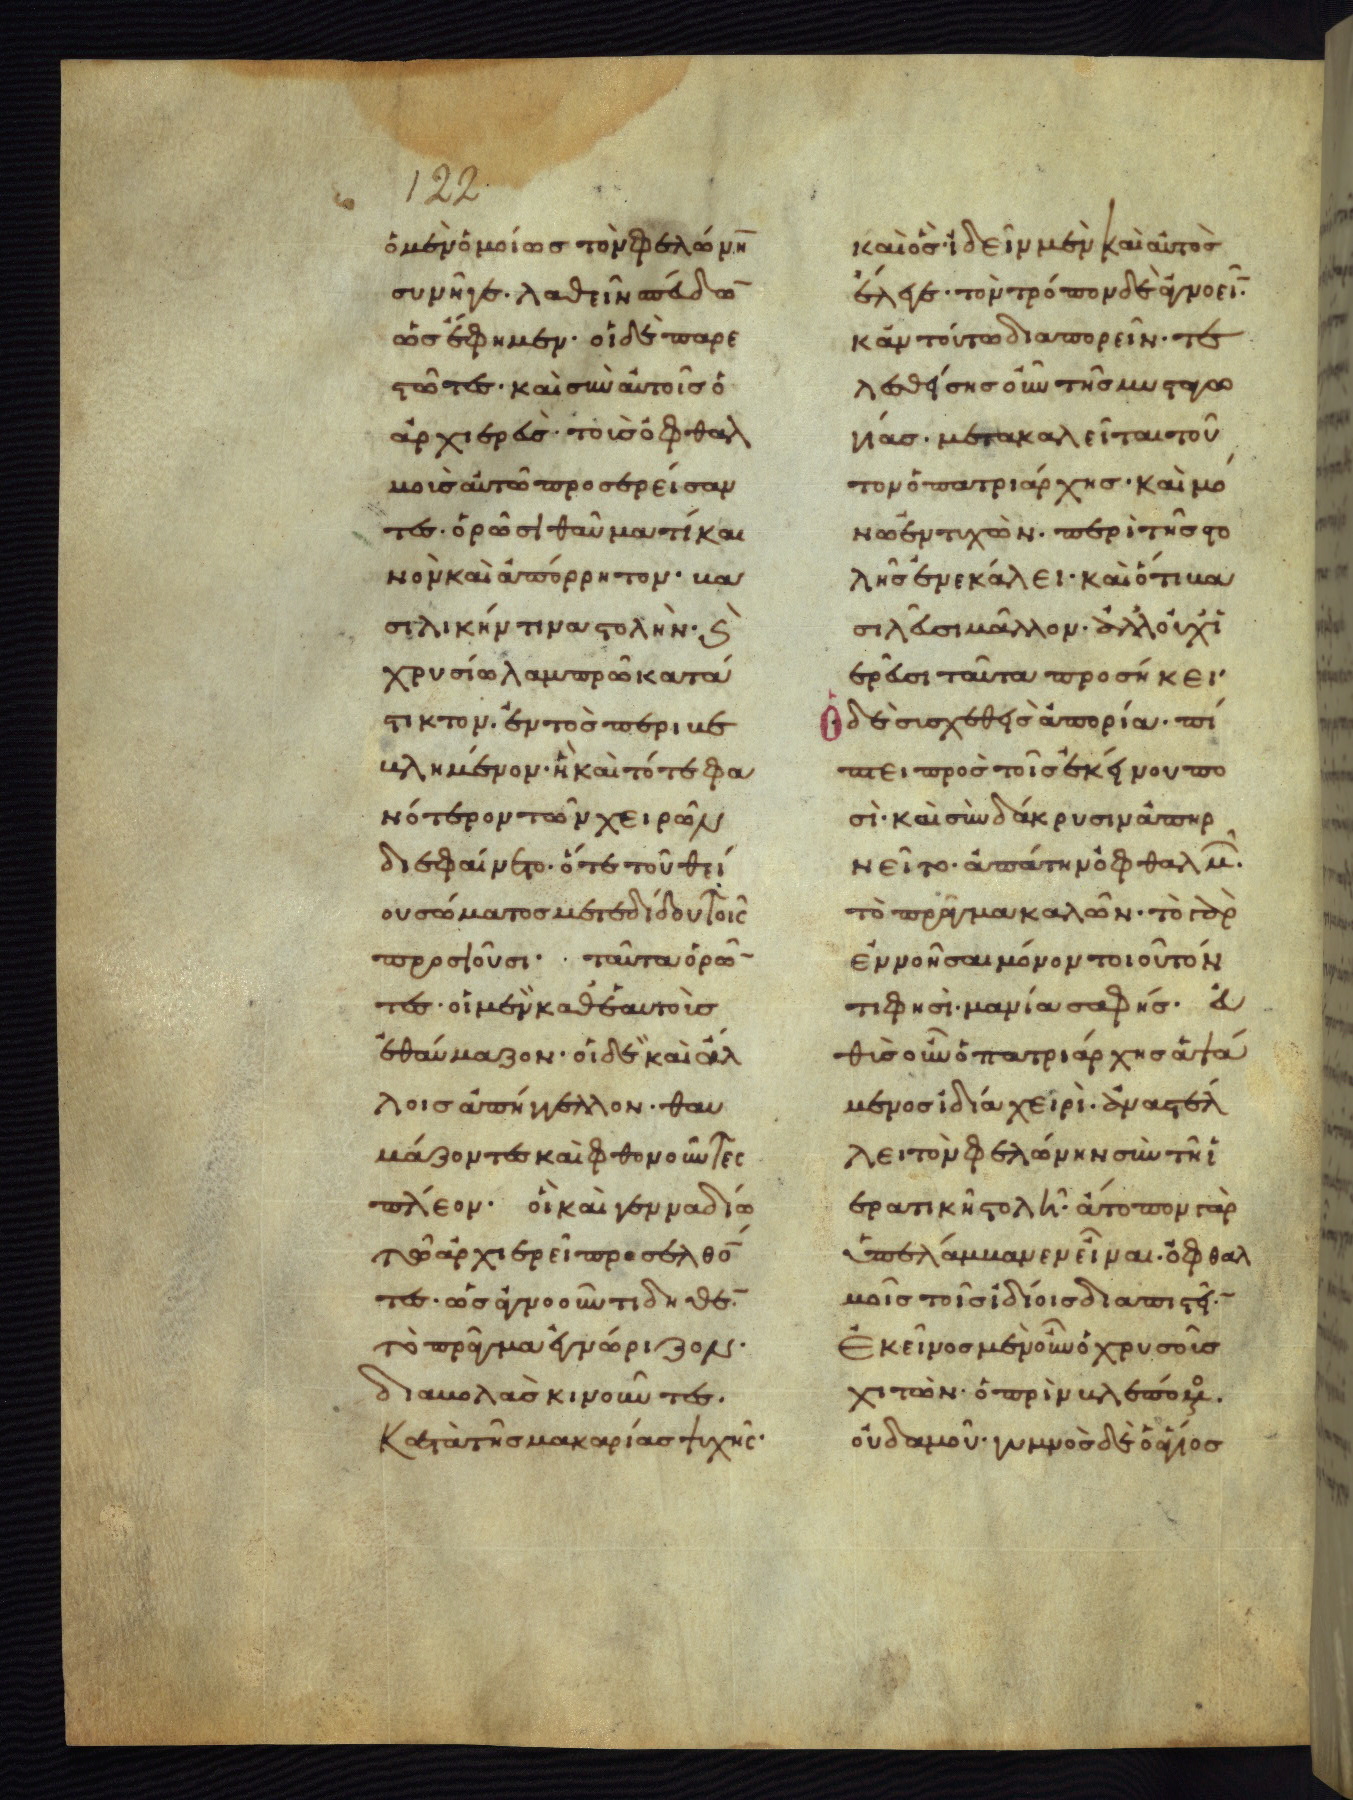 122
ὁ μὲν ὁμοίως τὸν φελώνη̅
συνῆγε· λαθεῖν σπεύδω̅
ὡς ἔφημεν· οἱ δὲ παρε
στῶτες· καὶ σὺν αὐτοῖς ὁ
ἀρχιερεὺς· τοὺς ὀφθαλ
μοὺς αὐτῶ προσερείσαν
τες· ὁρῶσι θαῦμά τι και
νὸν καὶ ἀπόρρητον· βα
σιλικήν τινα στολὴν· ἐ
χρυσίω λαμπρῶ κατά
στικτον· ἐντὸς περιβε
βλημένον· ἣ καὶ τότε φα
νότερον τῶν χειρῶν
διεφαίνετο· ὅτε τοῦ θεί
ου σώματος μετεδίδου τοῖς
προσιοῦσι· ταῦτα ὁρῶ̅
τες· οἱ μὲν καθ' ἑαυτοὺς
ἐθαύμαζον· οἱ δὲ καὶ ἀλ
λοις ἀπήγγελλον· θαυ
μάζοντες καὶ φθονοῦντες
πλέον· οἳ καὶ γενναδίω
τῶ ἀρχιερεῖ προσελθό̅
τες· ὡς ἀγνοοῦντι δῆθε̅·
τὸ πρᾶγμα ἐγνώριζον·
διαβολὰς κινοῦντες·
Κατὰ τῆς μακαρίας ψυχῆς·
καὶ ὃς· ἰδεῖν μὲν καὶ αὐτὸς
ἔλεγε· τὸν τρόπον δὲ ἀγνοεῖ̅·
κἀν τούτω διαπορεῖν· τε
λεσθείσης οὖν τῆς μυσταγω
γίας· μετακαλεῖται τοῦ
τον ὁ πατριάρχης· καὶ μό
νω ἐντυχὼν· περὶ τῆς στο
λῆς ἐνεκάλει· καὶ ὅτι βα
σιλεῦσι μᾶλλον· ἀλλ' οὐχὶ
ἱερεῦσι ταῦτα προσήκει·
Ὁ δὲ συσχεθεὶς ἀπορία· πί
πτει πρὸς τοῖς ἐκείνου πο
σὶ· καὶ σὺν δάκρυσιν ἀπηρ
νεῖτο· ἀπάτην ὀφθαλμ̅·
τὸ πρᾶγμα καλῶν· τὸ γὰρ
ἐννοῆσαι μόνον τοιοῦτόν
τι φησὶ· μανία σαφής· εὐ
θὺς οὖν ὁ πατριάρχης ἁψά
μενος ἰδία χειρὶ· ἀναστέλ
λει τὸν φελώνην σὺν τῆ ἱ
ερατικῆ στολῆ· ἄτοπον γὰρ
ὑπελάμβανεν εἶναι· ὀφθαλ
μοῖς τοῖς ἰδίοις διαπιστεῖ̅·
Ἐκεῖνος μὲν οὖν ὁ χρυσοῦς
χιτὼν· ὁ πρὶν βλεπόμ·
οὐδαμοῦ· γυμνὸς δὲ ὁ ἅγιος